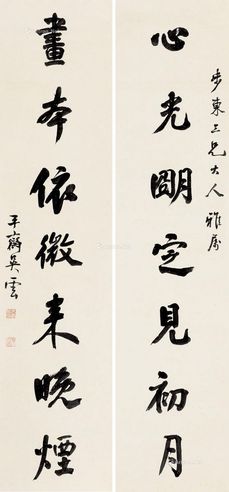 步東三兄大人雅屬
心光朙定見初月
畫夲依微来晚煙
平齋吳雲